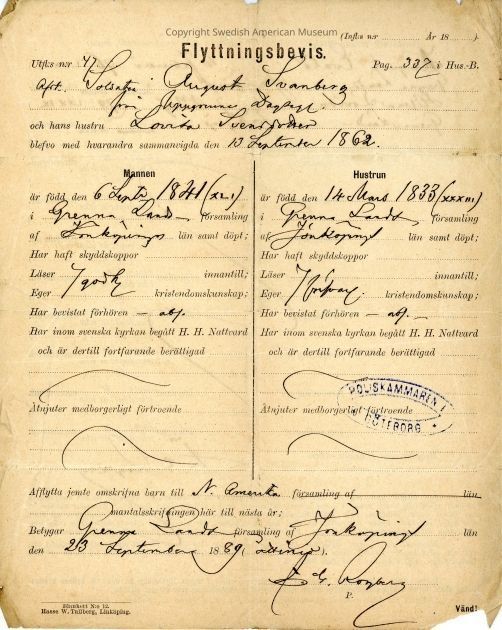 Copyright Swedish American Museum
(Infls n:r År 18 )
Flyttningsbevis.
Utfls n:r 47 Pag. 337 i Hus.-B.
Afsk. Soldaten August Svanberg
från Uppgrenna
och hans hustru Lovisa Svensdotter
blefvo med hvarandra sammanvigda den 13 September 1862.
Mannen
är född den 6 Sept. 1841 (XLI)
i Grenna Lands församling
af Jönköpings län samt döpt;
Har haft skyddskoppor
Läser innantill;
Eger kristendomskunskap;
Har bevistat förhören
Har inom svenska kyrkan begått H. H. Nattvard
och är dertill fortfarande berättigad
Åtnjuter medborgerligt förtroende
Hustrun
är född den 14 Mars 1833 (XXXIII)
i Grenna Lands församling
af Jönköpings län samt döpt;
Har haft skyddskoppor
Läser innantill;
Eger kristendomskunskap;
Har bevistat förhören
Har inom svenska kyrkan begått H. H. Nattvard
och är dertill fortfarande berättigad
Åtnjuter medborgerligt förtroende
POLISKAMMAREN I
GÖTEBORG
Afflytta jemte omskrifna barn till N. Amerika församling af län
mantalsskrifningen här till nästa år;
Betygar Grenna Lands församling af Jönköpings län
den 23 September 1889 (åttinio).
P.
Blankett N:o 12.
Hasse W. Tullberg, Linköping.
Vänd!